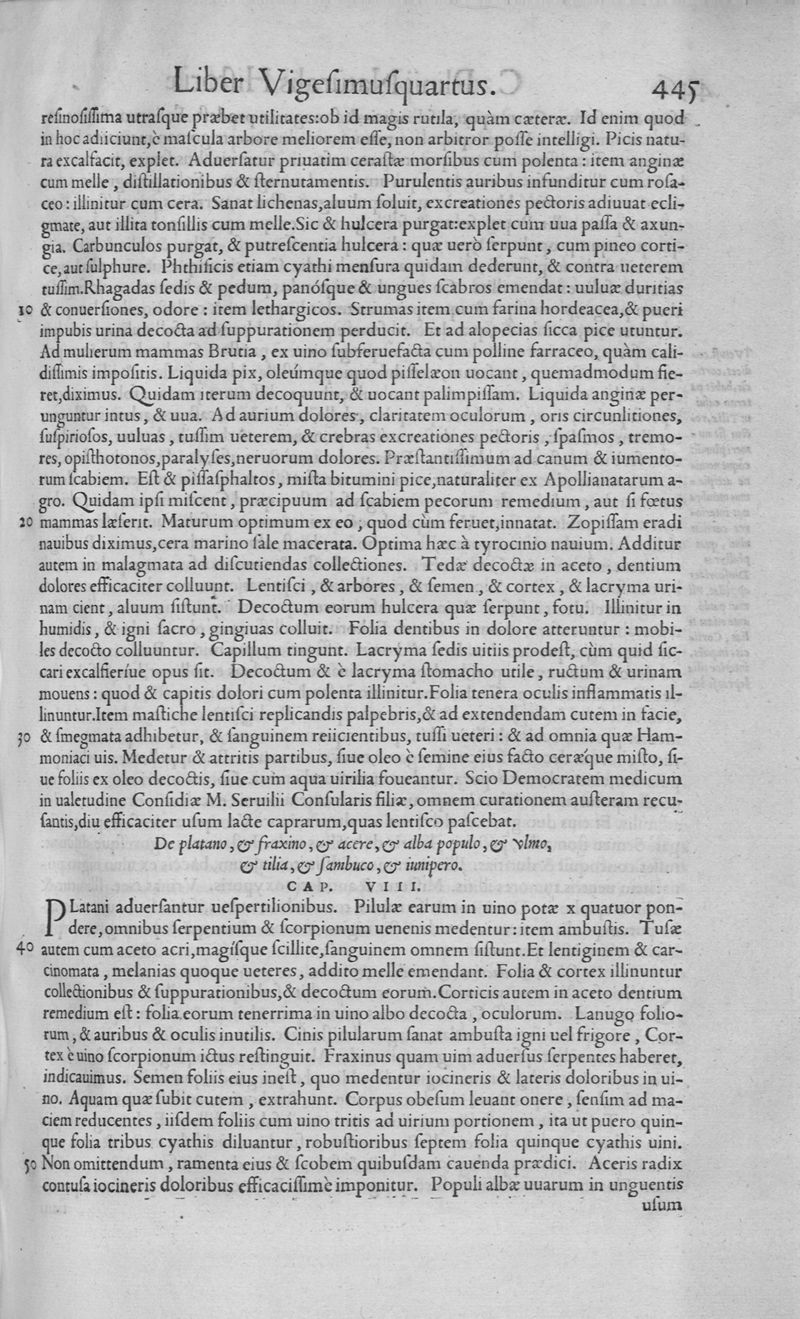 Liber Vigeſimuſquartus. 445
reſinoſiſſima utraſque præbet utilitates:ob id magis rutila, quàm cæteræ. Id enim quod
in hoc adiiciunt,è maſcula arbore meliorem eſſe, non arbitror poſſe intelligi. Picis natu-
ra excalfacit, explet. Aduerſatur priuatim ceraſtæ morſibus cum polenta : item anginæ
cum melle , diſtillationibus & ſternutamentis. Purulentis auribus infunditur cum roſa-
ceo : illinitur cum cera. Sanat lichenas,aluum ſoluit, excreationes pectoris adiuuat ecli-
gmate, aut illita tonſillis cum melle.Sic & hulcera purgat:explet cum uua paſſa & axun-
gia. Carbunculos purgat, & putreſcentia hulcera : quæ uerò ſerpunt , cum pineo corti-
ce,aut ſulphure. Phthiſicis etiam cyathi menſura quidam dederunt, & contra ueterem
tuſſim.Rhagadas ſedis & pedum, panóſque & ungues ſcabros emendat : uuluæ duritias
10 & conuerſiones, odore : item lethargicos. Strumas item cum farina hordeacea,& pueri
impubis urina decocta ad ſuppurationem perducit. Et ad alopecias ſicca pice utuntur.
Ad mulierum mammas Brutia , ex uino ſubferuefacta cum polline farraceo, quàm cali-
diſſimis impoſitis. Liquida pix, oleúmque quod piſſelæon uocant , quemadmodum fie-
ret,diximus. Quidam iterum decoquunt, & uocant palimpiſſam. Liquida anginæ per-
unguntur intus , & uua. Ad aurium dolores, claritatem oculorum , oris circunlitiones,
ſuſpirioſos, uuluas , tuſſim ueterem, & crebras excreationes pectoris , ſpaſmos , tremo-
res, opiſthotonos,paralyſes,neruorum dolores. Præſtantiſſimum ad canum & iumento-
rum ſcabiem. Eſt & piſſaſphaltos, miſta bitumini pice,naturaliter ex Apollianatarum a-
gro. Quidam ipſi miſcent , præcipuum ad ſcabiem pecorum remedium , aut ſi fœtus
20 mammas læſerit. Maturum optimum ex eo , quod cùm feruet,innatat. Zopiſſam eradi
nauibus diximus,cera marino ſale macerata. Optima hæc à tyrocinio nauium. Additur
autem in malagmata ad diſcutiendas collectiones. Tedæ decoctæ in aceto , dentium
dolores efficaciter colluunt. Lentiſci , & arbores , & ſemen , & cortex , & lacryma uri-
nam cient , aluum ſiſtunt. Decoctum eorum hulcera quæ ſerpunt , fotu. Illinitur in
humidis , & igni ſacro , gingiuas colluit. Folia dentibus in dolore atteruntur : mobi-
les decocto colluuntur. Capillum tingunt. Lacryma ſedis uitiis prodeſt, cùm quid ſic-
cari excalfieríue opus ſit. Decoctum & è lacryma ſtomacho utile , ructum & urinam
mouens : quod & capitis dolori cum polenta illinitur.Folia tenera oculis inflammatis il-
linuntur.Item maſtiche lentiſci replicandis palpebris,& ad extendendam cutem in facie,
30 & ſmegmata adhibetur, & ſanguinem reiicientibus, tuſſi ueteri : & ad omnia quæ Ham-
moniaci uis. Medetur & attritis partibus, ſiue oleo è ſemine eius facto cerǽque miſto, ſi-
ue foliis ex oleo decoctis, ſiue cum aqua uirilia foueantur. Scio Democratem medicum
in ualetudine Conſidiæ M. Seruilii Conſularis filiæ, omnem curationem auſteram recu-
ſantis,diu efficaciter uſum lacte caprarum,quas lentiſco paſcebat.
De platano, & fraxino, & acere, & alba populo, & vlmo,
& tilia, & ſambuco, & iunipero.
CAP. VIII.
PLatani aduerſantur ueſpertilionibus. Pilulæ earum in uino potæ x quatuor pon-
dere,omnibus ſerpentium & ſcorpionum uenenis medentur: item ambuſtis. Tuſæ
40 autem cum aceto acri,magíſque ſcillite,ſanguinem omnem ſiſtunt.Et lentiginem & car-
cinomata , melanias quoque ueteres , addito melle emendant. Folia & cortex illinuntur
collectionibus & ſuppurationibus,& decoctum eorum.Corticis autem in aceto dentium
remedium eſt : folia eorum tenerrima in uino albo decocta , oculorum. Lanugo folio-
rum , & auribus & oculis inutilis. Cinis pilularum ſanat ambuſta igni uel frigore , Cor-
tex è uino ſcorpionum ictus reſtinguit. Fraxinus quam uim aduerſus ſerpentes haberet,
indicauimus. Semen foliis eius ineſt , quo medentur iocineris & lateris doloribus in ui-
no. Aquam quæ ſubit cutem , extrahunt. Corpus obeſum leuant onere , ſenſim ad ma-
ciem reducentes , iiſdem foliis cum uino tritis ad uirium portionem , ita ut puero quin-
que folia tribus cyathis diluantur , robuſtioribus ſeptem folia quinque cyathis uini.
50 Non omittendum , ramenta eius & ſcobem quibuſdam cauenda prædici. Aceris radix
contuſa iocineris doloribus efficaciſſimè imponitur. Populi albæ uuarum in unguentis
uſum